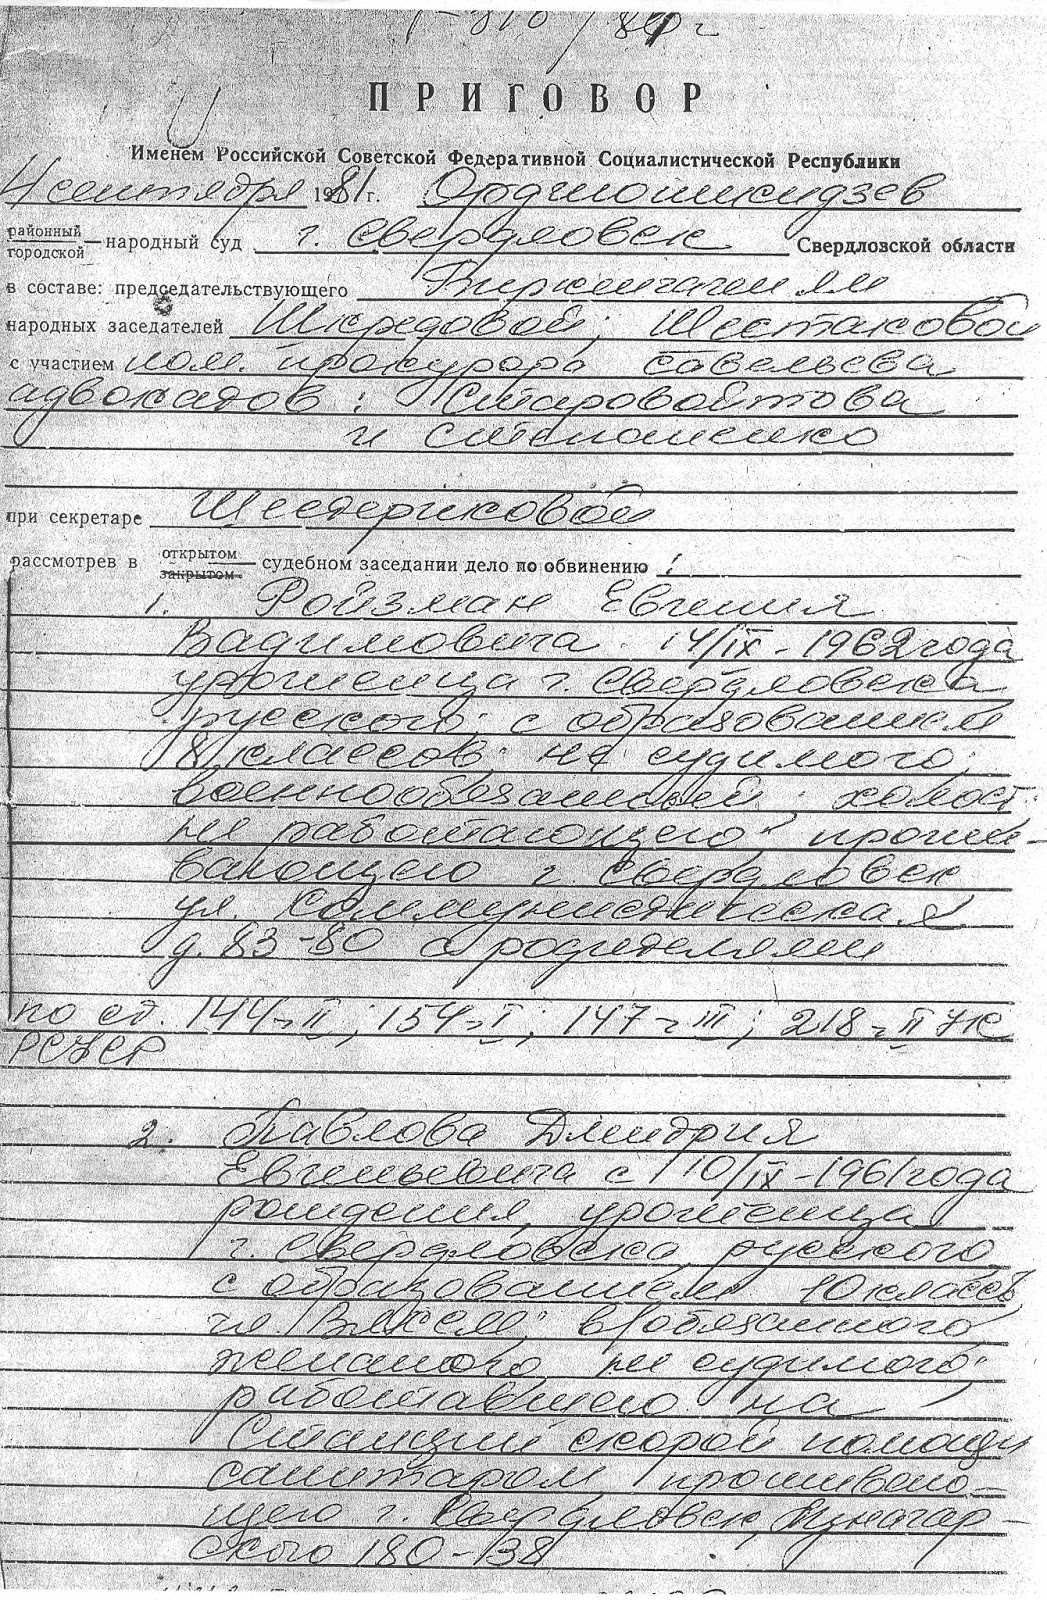 ПРИГОВОР
Именем Российской Советской Федеративной Социалистической Республики
4 сентября 1981 г. Орджоникидзев
районный
городской народный суд г. Свердловск Свердловской области
в составе: председательствующего
народных заседателей Шкредовой, Шестаковой
с участием пом. прокурора Савельева
адвокатов: Старовойтова
и Степаненко
при секретаре Шестериковой
рассмотрев в открытом
закрытом судебном заседании дело по обвинению:
1. Ройзман Евгения
Вадимовича 14/IX-1962 года
уроженца г. Свердловска
русского, с образованием
8 классов, не судимого,
военнообязанный, холост,
не работающего, прожи-
вающего г. Свердловск
ул. Коммунистическая
д. 83-80 с родителями
по ст. 144 ч II; 154 ч I; 147 ч III; 218 ч II УК
РСФСР
2. Павлова Дмитрия
Евгеньевича с 10/IX-1961 года
рождения, уроженца
г. Свердловска, русского,
с образованием 10 классов
чл. ВЛКСМ, в/обязанного
женатого, не судимого,
работавшего на
Станции скорой помощи
санитаром, прожива-
ющего г. Свердловск,
180-138